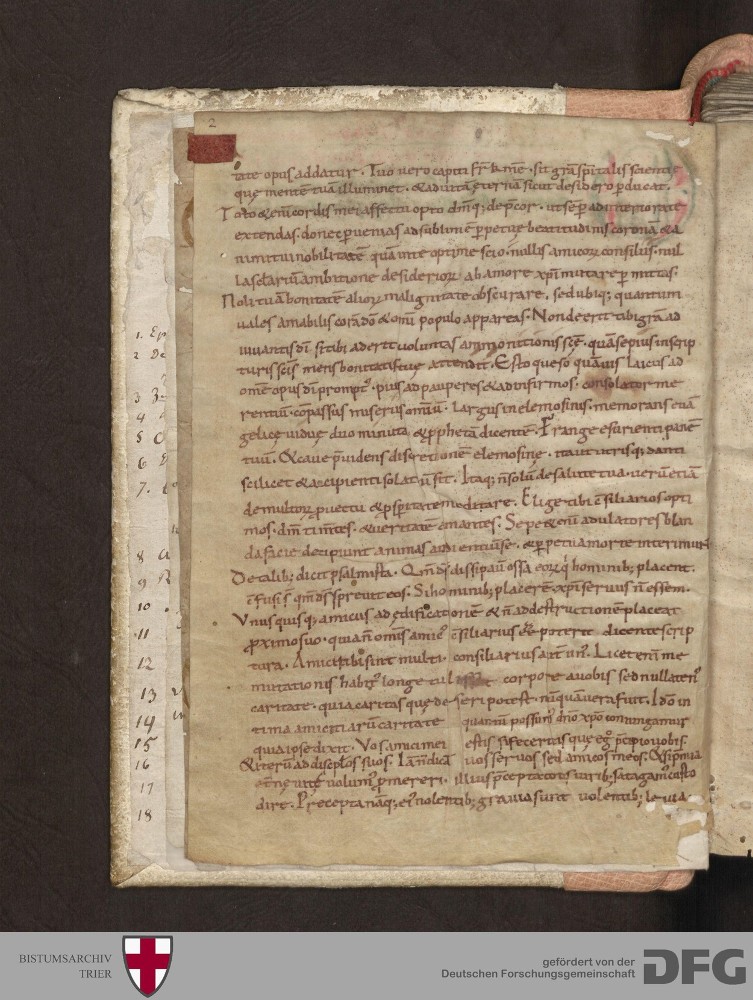 2
tate opus addatur. Tuo uero capiti fr̄ k̄me. sit gr̄a sp̄italis scientię
quę mentē tuā illuminet. & ad uitā ęternā sicut desidero p̄ducat.
Toto &eni cordis mei affectu opto dm̄q; dep̄cor. ut sēp ad interiora te
extendas. donec p̄uenias ad sublimē p̄petuę beatitudinis coronā &a
nimi tui nobilitatē quā in te optime scio. nullis amicorꝝ consiliis. nul
la sc̄lariū ambitione desideriorꝝ ab amore xp̄i mutare p̄mittas.
Noli tuā bonitatē aliorꝝ malignitate obscurare. sed ubiq; quantum
uales amabilis corā dō & omi populo appareas. Non deerit tibi gr̄a ad
iuuantis dī. si tibi aderit uoluntas ammonitionis scę. quā sępius in scrip
turis scīs mens bonitatis tuę attendit. Esto queso quāuis laicus ad
omē opus dī promptꝰ. pius ad pauperes & ad infirmos. consolator me
rentiū. cōpassus miseriis omiū. largus in elemosinis. memorans euā
gelicę uiduę duo minuta & p̄phetā dicentē. Frange esurienti panē
tuū. & caue p̄uidens discretionē elemosinę. ita ut utrisq; danti
scilicet & accipienti solat̄ū sit. Itaq; n̄ solū de salute tua. uerū etiā
de multorꝝ p̄uectu & p̄speritate meditare. Elige tibi c̄siliarios opti
mos. dm̄ tim̄tes. & ueritatē amantes. Sepe &enī adulatores blan
da facie decipiunt animas audientiū se. & p̄petua morte interimunt
De talib; dicit psalmista. Qm̄ ds̄ dissipauit ossa eorꝝ qī hominib; placent.
c̄fusi s̄ qm̄ ds̄ spreuit eos. Si hominib; placerē. xp̄i seruus n̄ essem.
Vnusquisq; amicus ad ędificationē & n̄ ad destructionē placeat
p̄ximo suo. quia n̄ omis amicꝰ c̄siliarius &ē poterit dicente scrip
tura. Amici tibi sint multi. consiliarius aūt unꝰ. Licet enī me
mutationis habitꝰ longe tulisset corpore a uobis sed nullatenꝰ
caritate. quia caritas quę deseri potest. nūquā uera fuit. Idō in
tima amicitiarū caritate quantū possumꝰ dn̄o xp̄o coniungamur
quia ipse dixit. Vos amici mei estis si feceritis quę eg̊ p̄cipio uobis.
& iterū ad discip̄los suos. Iā n̄ dicā uos seruos sed amicos meos. & si p̄mia
ęt̄nę uitę uolumꝰ p̄mereri. illius p̄cepta totis uirib; satagamꝰ custo
dire. Precepta nāq; eiꝰ nolentib; grauia sunt uolentib; leuia.
1. Ep
2 De
3
4
5
6
7.
8
9
10
11
12
13
14
15
16
17
18
BISTUMSARCHIV
TRIER
gefördert von der
Deutschen Forschungsgemeinschaft
DFG